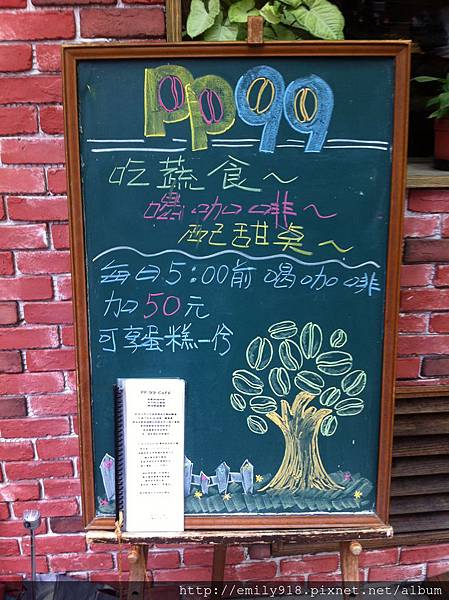 Pp99
吃蔬食~
喝咖啡~
配甜桌~
每日5:00前喝咖啡
加50元
可享蛋糕一份
PP 99 CAFE
http://emily918.pixnet.net/album